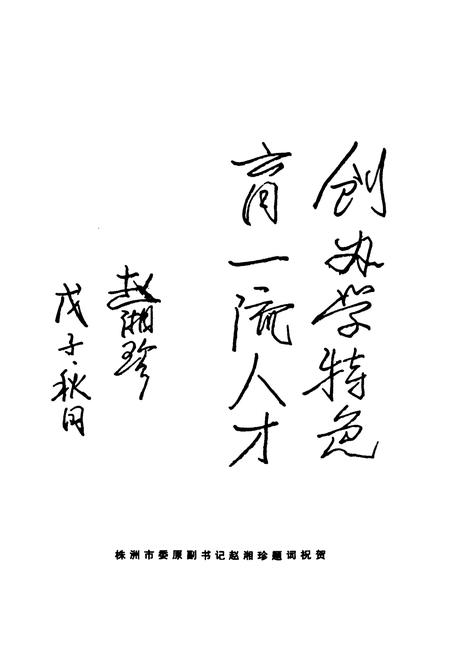 创办学特色
育一流人才
赵湘珍
戊子·秋月
株洲市委原副书记赵湘珍题词祝贺